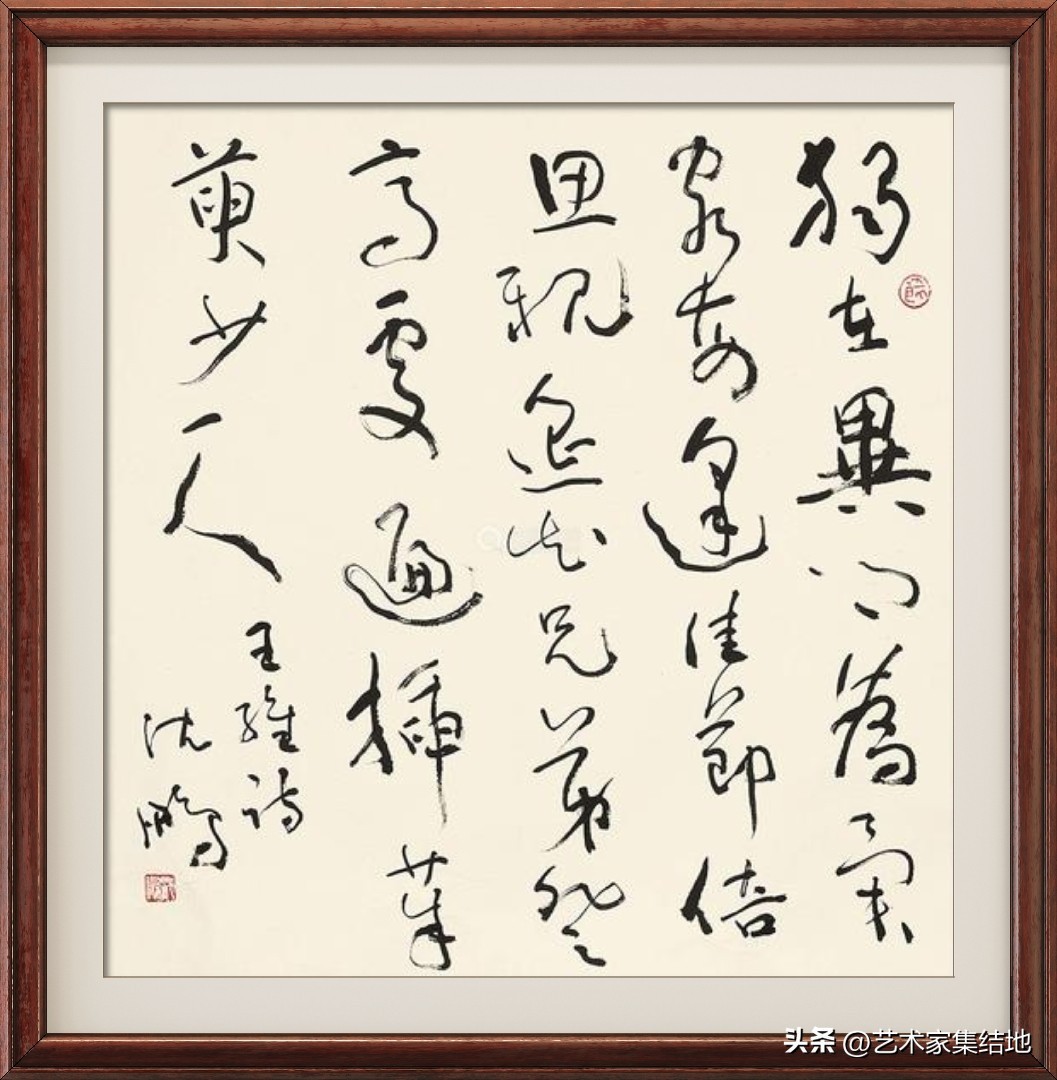 獨在異鄉為異
客每逢佳節倍
思親遥知兄弟登
高處遍插茱
萸少一人
王維詩
沈鵬
头条 @艺术家集结地